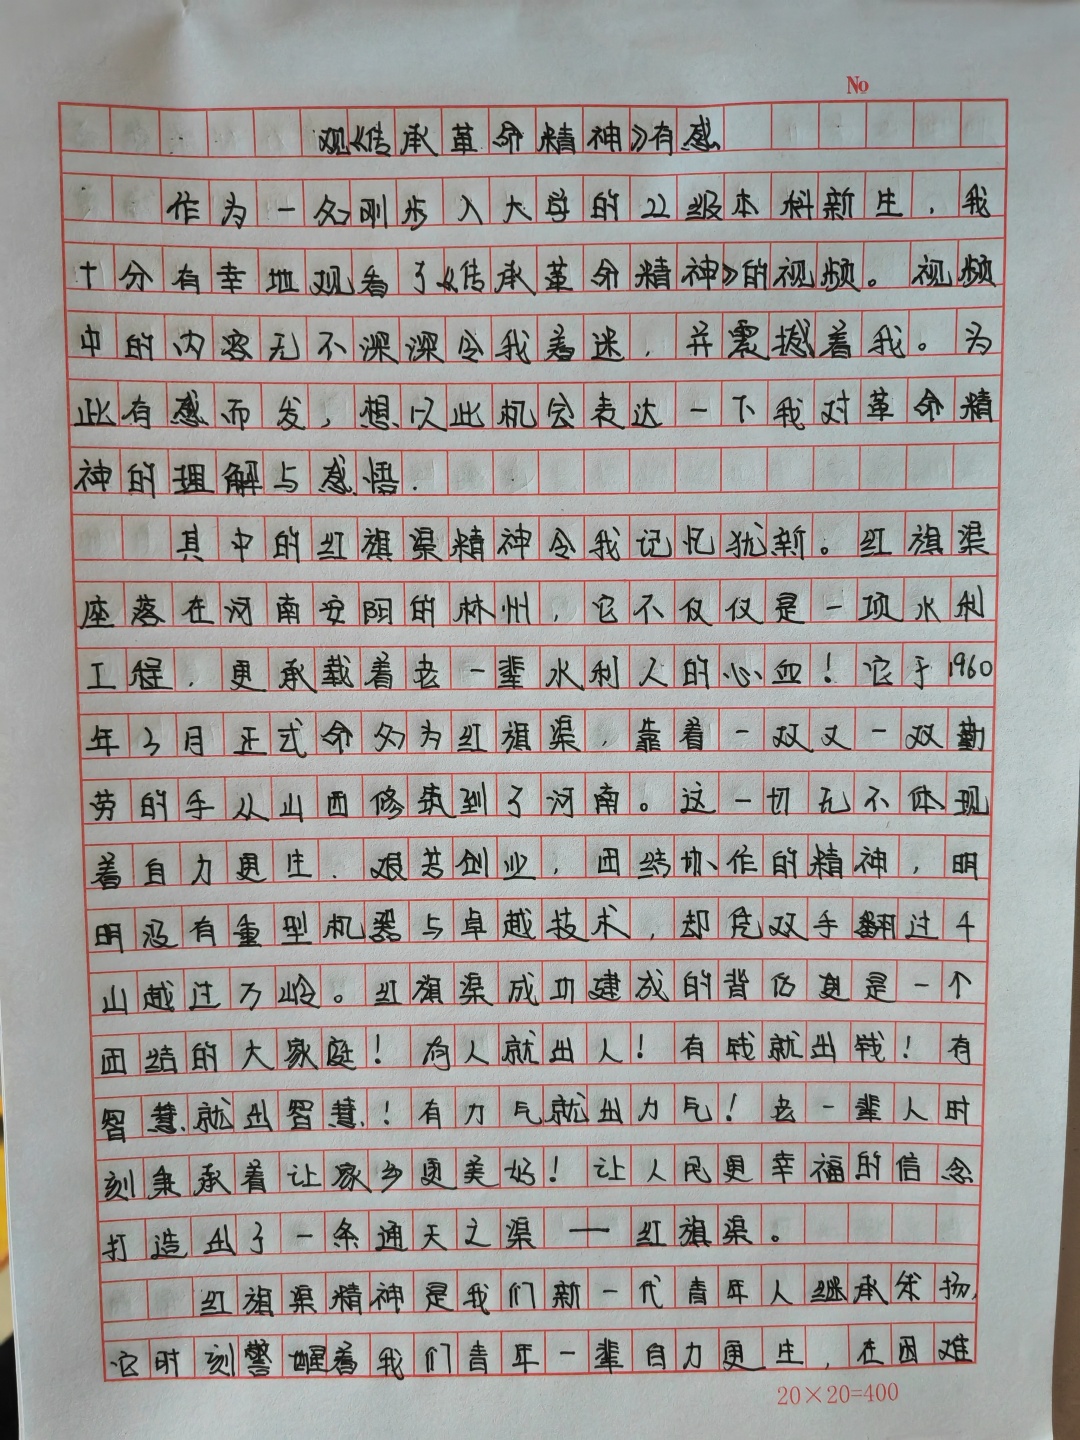 No
观《传承革命精神》有感
作为一名刚步入大学的22级本科新生，我
十分有幸地观看了《传承革命精神》的视频。视频
中的内容无不深深令我着迷，并震撼着我。为
此有感而发，想以此机会表达一下我对革命精
神的理解与感悟.
其中的红旗渠精神令我记忆犹新。红旗渠
座落在河南安阳的林州，它不仅仅是一项水利
工程，更承载着老一辈水利人的心血！它于1960
年3月正式命名为红旗渠，靠着一双又一双勤
劳的手从山西修筑到了河南。这一切无不体现
着自力更生．艰苦创业，团结协作的精神，明
明没有重型机器与卓越技术，却凭双手翻过千
山越过万岭。红旗渠成功建成的背后更是一个
团结的大家庭！有人就出人！有钱就出钱！有
智慧就出智慧！有力气就出力气！老一辈人时
刻秉承着让家乡更美好！让人民更幸福的信念
打造出了一条通天之渠——红旗渠。
红旗渠精神是我们新一代青年人继承发扬，
它时刻警醒着我们青年一辈自力更生，在困难
20×20=400